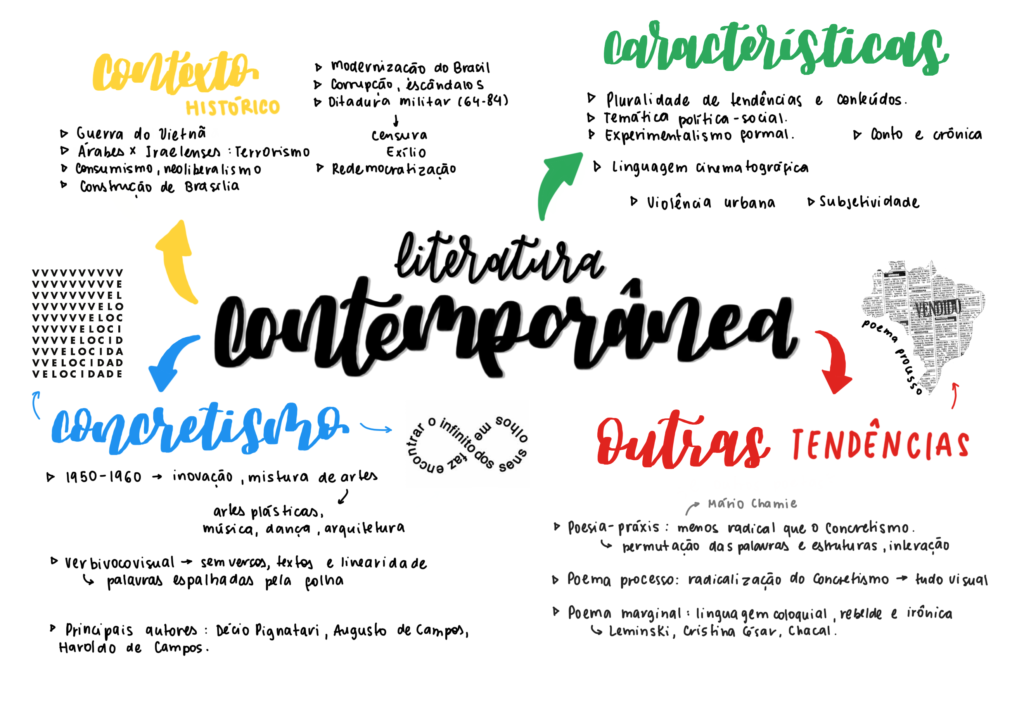 contexto
HISTÓRICO
▷ Guerra do Vietnã
▷ Árabes x Iraelenses : Terrorismo
▷ Consumismo, neoliberalismo
▷ Construção de Brasília
▷ Modernização do Brasil
▷ Corrupção, escândalos
▷ Ditadura militar (64-84)
↓
Censura
Exílio
▷ Redemocratização
características
▷ Pluralidade de tendências e conteúdos.
▷ Temática política-social.
▷ Experimentalismo formal.
▷ Conto e crônica
▷ Linguagem cinematográfica
▷ Violência urbana
▷ Subjetividade
literatura
contemporânea
VVVVVVVVVV
VVVVVVVVVE
VVVVVVVVEL
VVVVVVVELO
VVVVVVELOC
VVVVVELOCI
VVVVELOCID
VVVELOCIDA
VVELOCIDAD
VELOCIDADE
concretismo
→
encontrar o infinito dos seus olhos me faz
▷ 1950-1960 → inovação, mistura de artes
artes plásticas,
música, dança, arquitetura
▷ Verbivocovisual → sem versos, textos e linearidade
↳ palavras espalhadas pela folha
▷ Principais autores : Décio Pignatari, Augusto de Campos,
Haroldo de Campos.
VENDIDO
poema processo
Outras TENDÊNCIAS
Mário Chamie
▷ Poesia-práxis : menos radical que o Concretismo.
↳ permutação das palavras e estruturas, interação
▷ Poema processo: radicalização do Concretismo → tudo visual
▷ Poema marginal : linguagem coloquial, rebelde e irônica
↳ Leminski, Cristina César, Chacal.